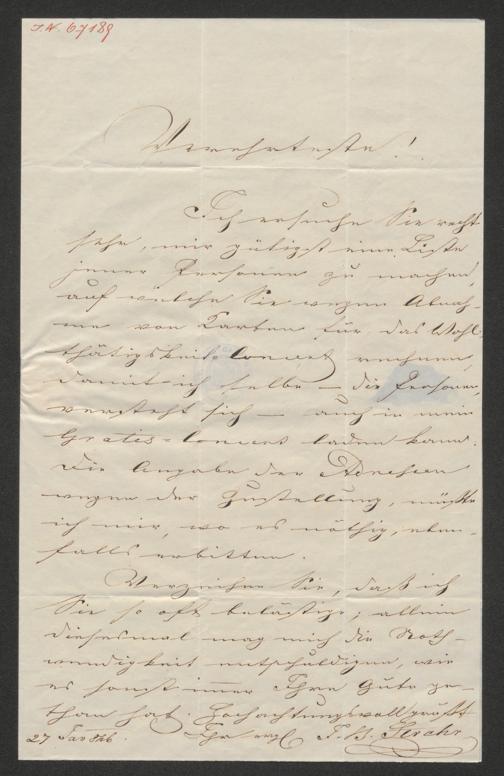 I.N. 67189
Verehrteste!
Ich ersuche Sie recht
sehr, mir gütigst eine Liste
jener Personen zu machen,
auf welche Sie wegen Abnah-
me von Karten für das Wohl
thätigskeits-Concert rechnen,
damit ich selbe — die Personen,
versteht sich — auch in mein
Gratis-Concert laden kann.
Die Angabe der Adressen
wegen der Zustellung, müßte
ich mir, wo es nöthig, eben-
falls erbitten.
Verzeihen Sie, daß ich
Sie so oft belästige; allein
diesesmal mag mich die Noth-
wendigkeit entschuldigen, wie
es sonst immer Ihre Güte ge-
than hat. Hochachtungsvoll grüßt
27 Jan 846. Ihr erg.